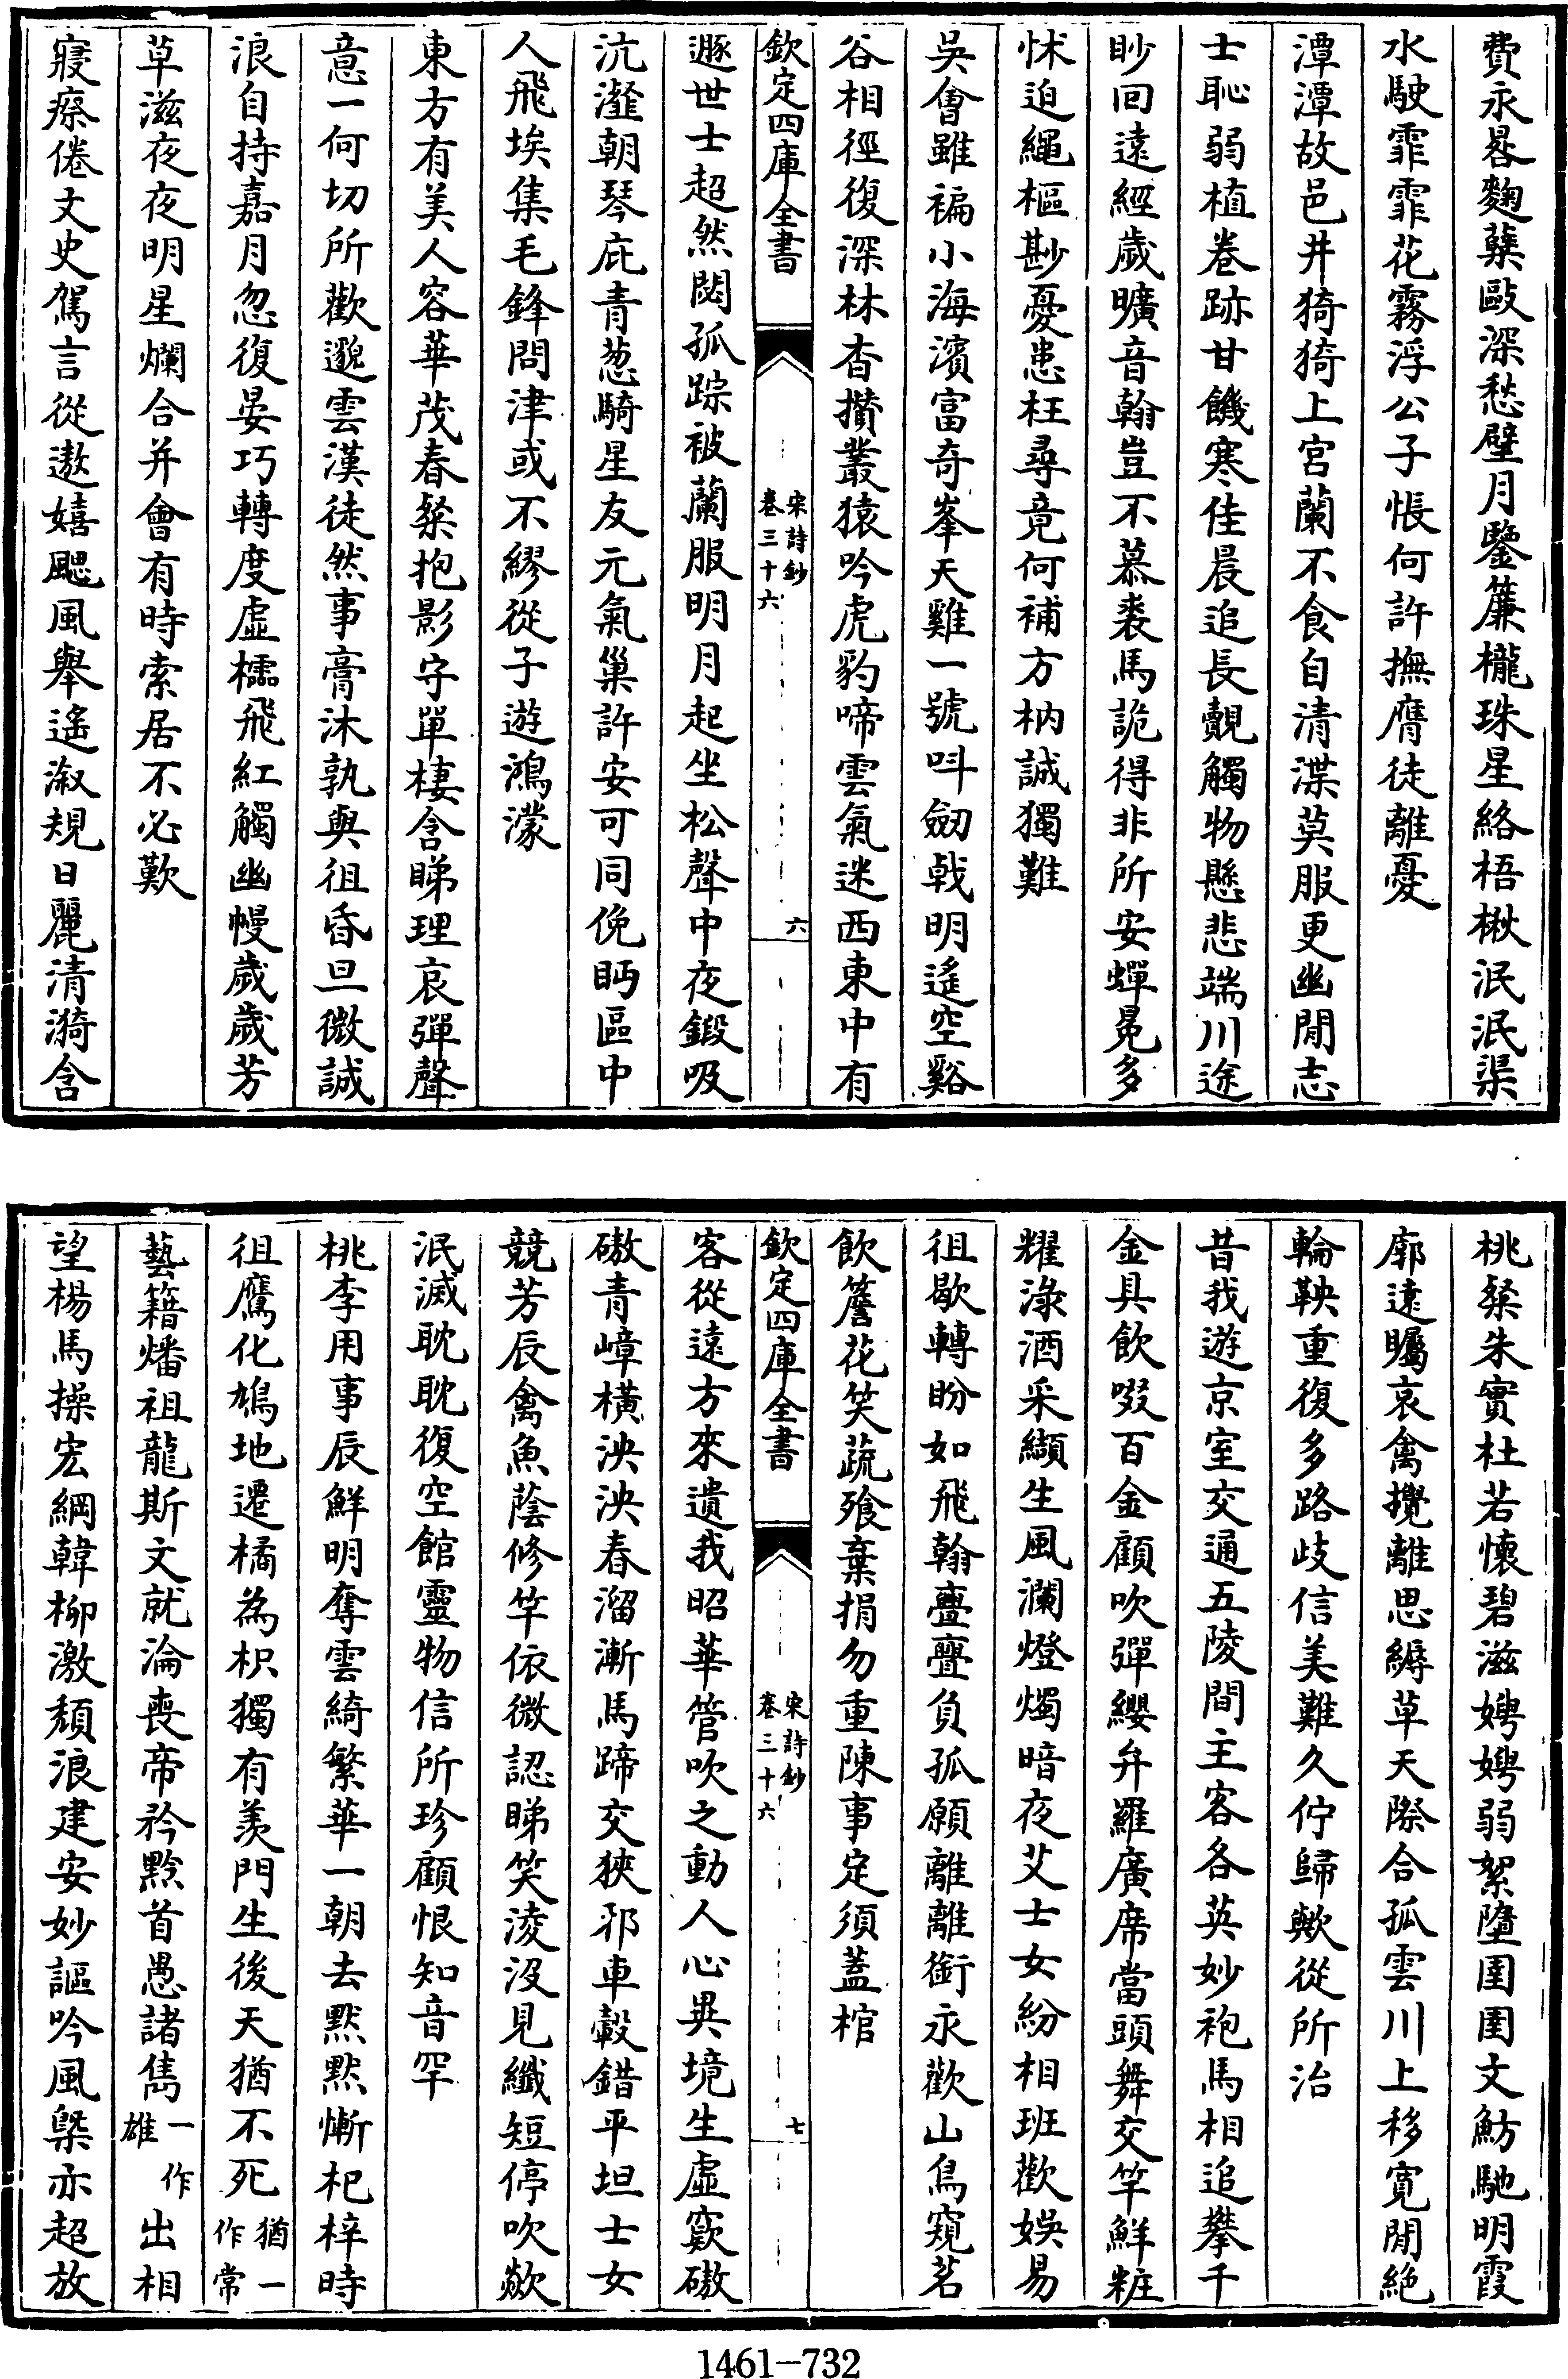 費永晷麴蘖毆深愁壁月鑒簾櫳珠星絡梧楸泯泯渠
水駛霏霏花霧浮公子悵何許撫膺徒離憂
潭潭故邑井猗猗上宮蘭不食自清渫莫服更幽閒志
士恥弱植卷跡甘饑寒佳晨追長覿觸物懸悲端川途
眇回遠經歲曠音翰豈不慕裘馬詭得非所安蟬冕多
怵迫繩樞尠憂患枉尋竟何補方枘誠獨難
吳會雖褊小海濱富奇峯天雞一號呌劒戟明遙空谿
谷相徑復深林杳攢叢猿吟虎豹啼雲氣迷西東中有
欽定四庫全書
宋詩鈔
卷三十六
六
遯世士超然閟孤踪被蘭服明月起坐松聲中夜鍛吸
沆瀣朝琴庇青葱騎星友元氣巢許安可同俛眄區中
人飛埃集毛鋒問津或不繆從子遊鴻濛
東方有美人容華茂春粲抱影守單棲含睇理哀彈聲
意一何切所歡邈雲漢徒然事膏沐孰與徂昏旦微誠
浪自持嘉月忽復晏巧轉度虛櫺飛紅觸幽幔歲歲芳
草滋夜夜明星爛合并會有時索居不必歎
寢瘵倦文史駕言從遨嬉颸風舉遙淑規日麗清漪含
桃粲朱實杜若懷碧滋娉娉弱絮墮圉圉文魴馳明霞
廓遠矚哀禽攪離思縟草天際合孤雲川上移寛閒絶
輪鞅重復多路歧信美難久佇歸歟從所治
昔我遊京室交通五陵間主客各英妙袍馬相追攀千
金具飲啜百金顧吹彈纓弁羅廣席當頭舞交竿鮮粧
耀淥酒采纈生風瀾燈燭暗夜艾士女紛相班歡娛易
徂歇轉盼如飛翰亹亹負孤願離離銜永歎山鳥窺茗
飲簷花笑蔬飱棄捐勿重陳事定須蓋棺
欽定四庫全書
宋詩鈔
卷三十六
七
客從遠方來遺我昭華管吹之動人心異境生虛窾磝
磝青嶂橫泱泱春溜漸馬蹄交狹邪車轂錯平坦士女
競芳辰禽魚蔭修竿依微認睇笑淩沒見纖短停吹歘
泯滅眈眈復空館靈物信所珍顧恨知音罕
桃李用事辰鮮明奪雲綺繁華一朝去默默慚杞梓時
徂鷹化鳩地遷橘為枳獨有羨門生後天猶不死猶一作常
藝籍燔祖龍斯文就淪喪帝矜黔首愚諸儁一作雄出相
望楊馬操宏綱韓柳激頽浪建安妙謳吟風槩亦超放
1461-732